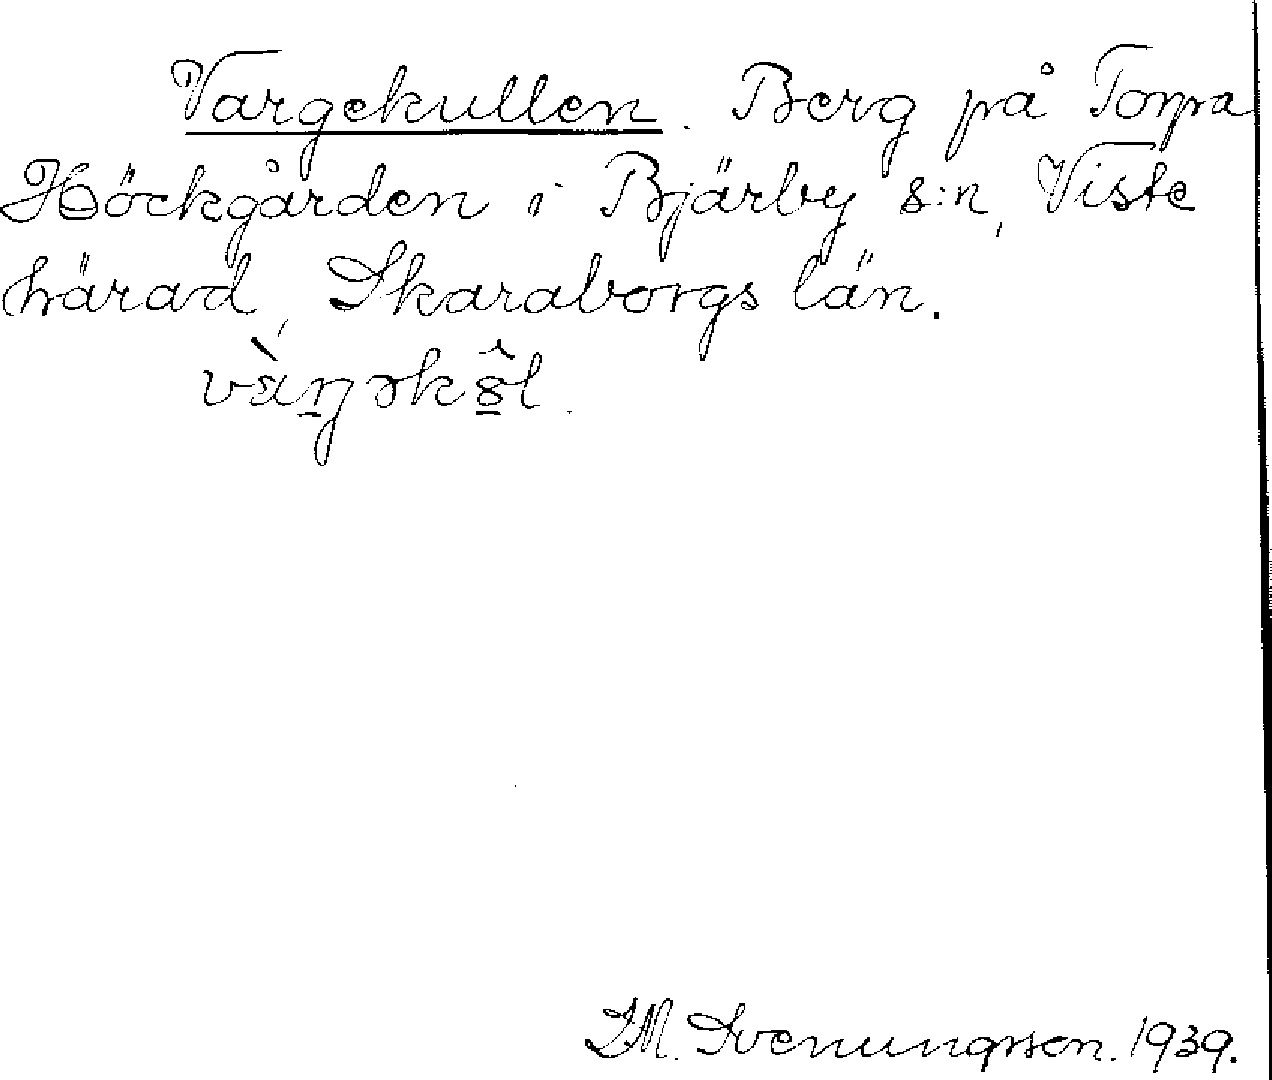 Vargekullen. Berg på Torpa
Höckgården i Bjärby s:n, Viste
härad, Skaraborgs län.
I.M. Svenungsson. 1939.